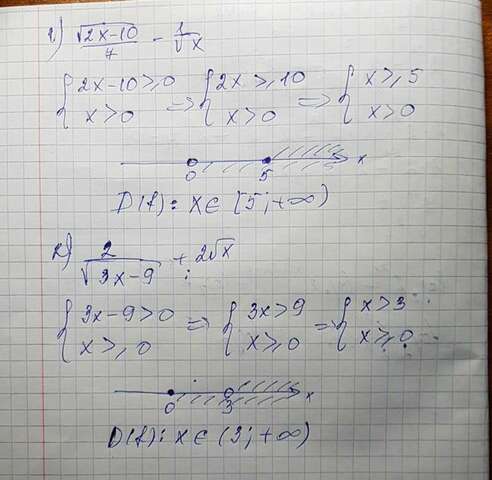 1) √(2x-10)/7 - 1/√x
{2x-10≥0 x>0 => {2x≥10 x>0 => {x≥5 x>0
0 5 x
D(f): x∈[5;+∞)
2) 2/√(3x-9) + 2√x
{3x-9>0 x≥0 => {3x>9 x≥0 => {x>3 x≥0
0 3 x
D(f): x∈(3;+∞)